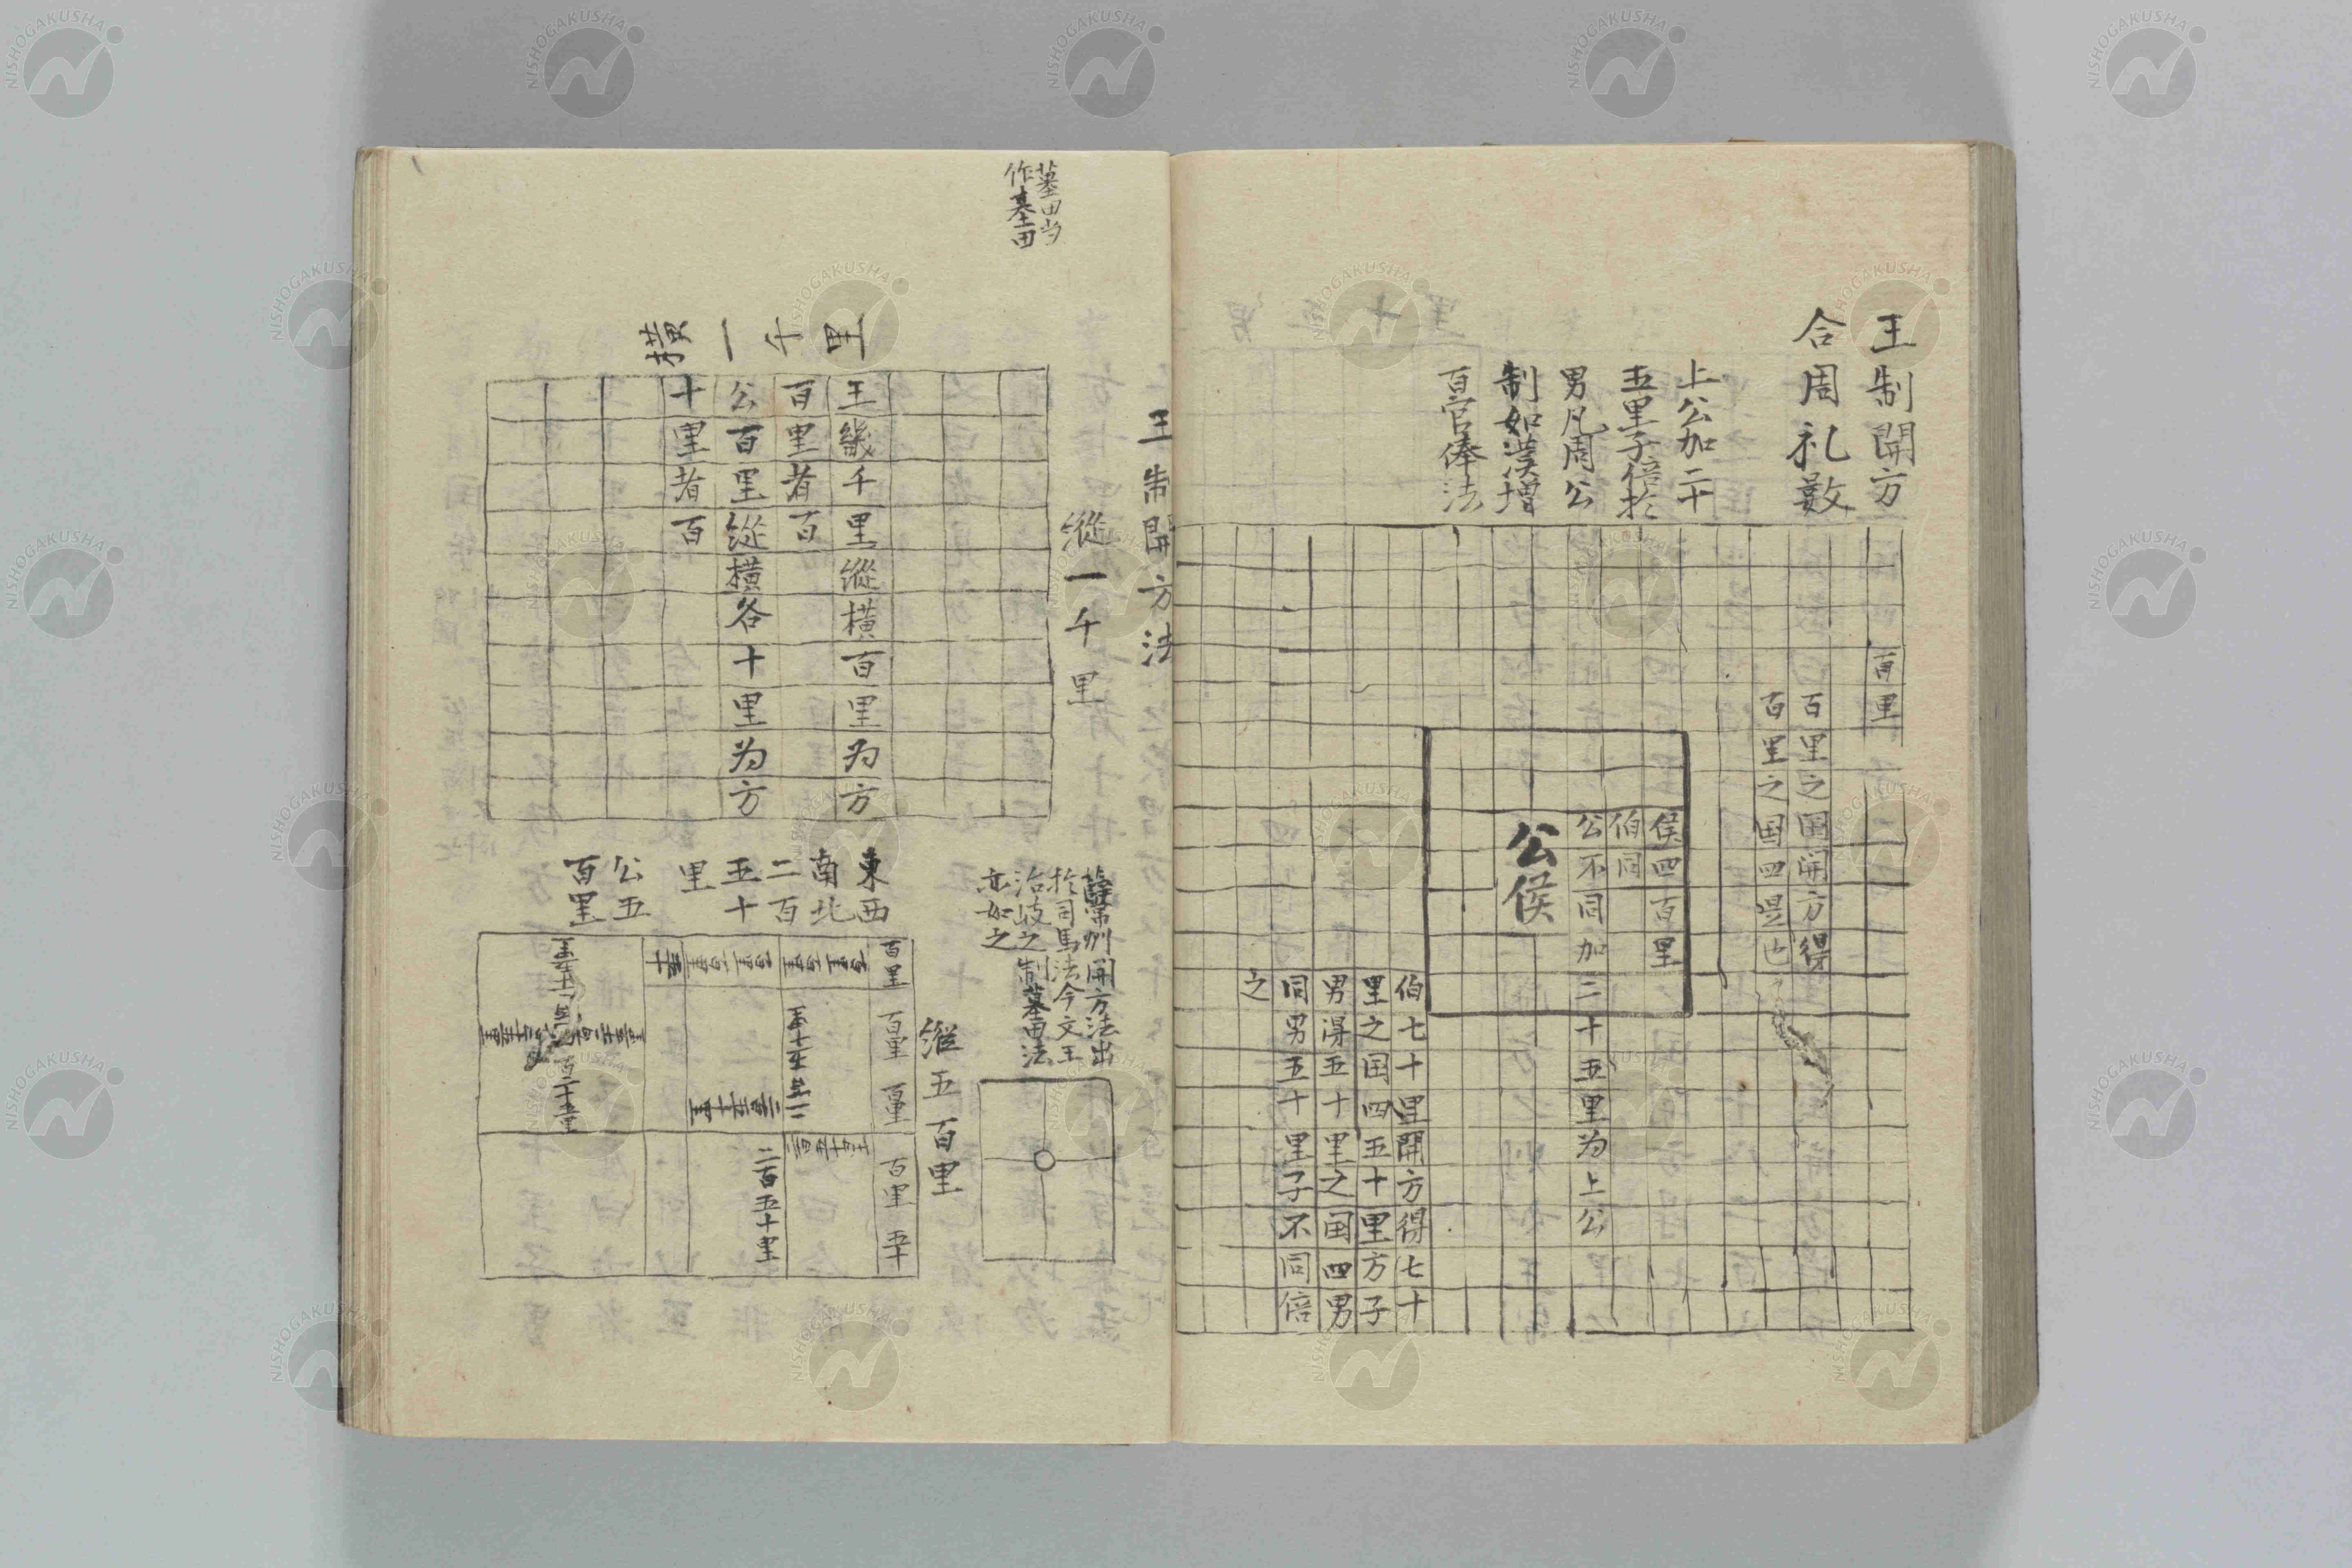 王制開方
合周礼數
上公加二十
五里子倍於
男凡周公
制如漢增
百官俸法
百里
百里之国開方得
百里之国四是也
侯四百里
伯同
公不同加二十五里为上公
公侯
伯七十里開方得七十
里之国四五十里方子
男得五十里之国四男
同男五十里子不同倍
之
王制開方法
墓田当
作基田
縱一千里
橫一千里
王畿千里縱橫百里为方
百里者百
公百里縱橫各十里为方
十里者百
開方法出
於司馬法今文王
治岐之制墓田法
亦如之
東西
南北
二百
五十
里
公五
百里
縱五百里
百里
百里
百里
百里
二百五十里
NISHOGAKUSHA